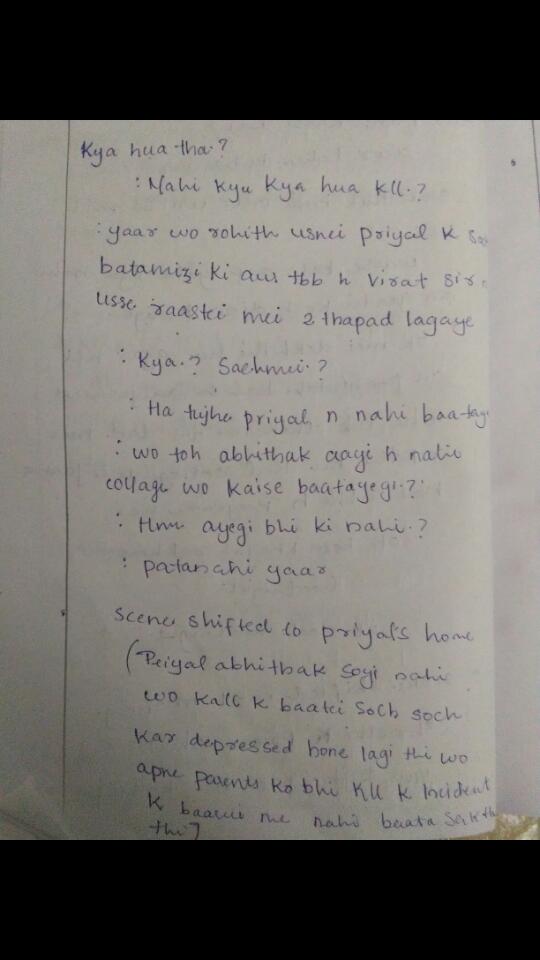 Kya hua tha.?
: Nahi kyu kya hua kll.?
: yaar wo rohith usnei priyal k
batamizi ki aur tbb h virat sir
usse raastei mei 2 thapad lagaye
: Kya.? Sachmei.?
: Ha tujhe priyal n nahi
: wo toh abhithak aayi h nahi
collage wo kaise baatayegi.?
: Hmm ayegi bhi ki nahi.?
: patanahi yaar
scene shifted to priyal's home
(Priyal abhithak soyi nahi
wo kall k baatei soch soch
kar depressed hone lagi thi wo
apne parents ko bhi kll k incident
k baarei me nahi baata
thi]